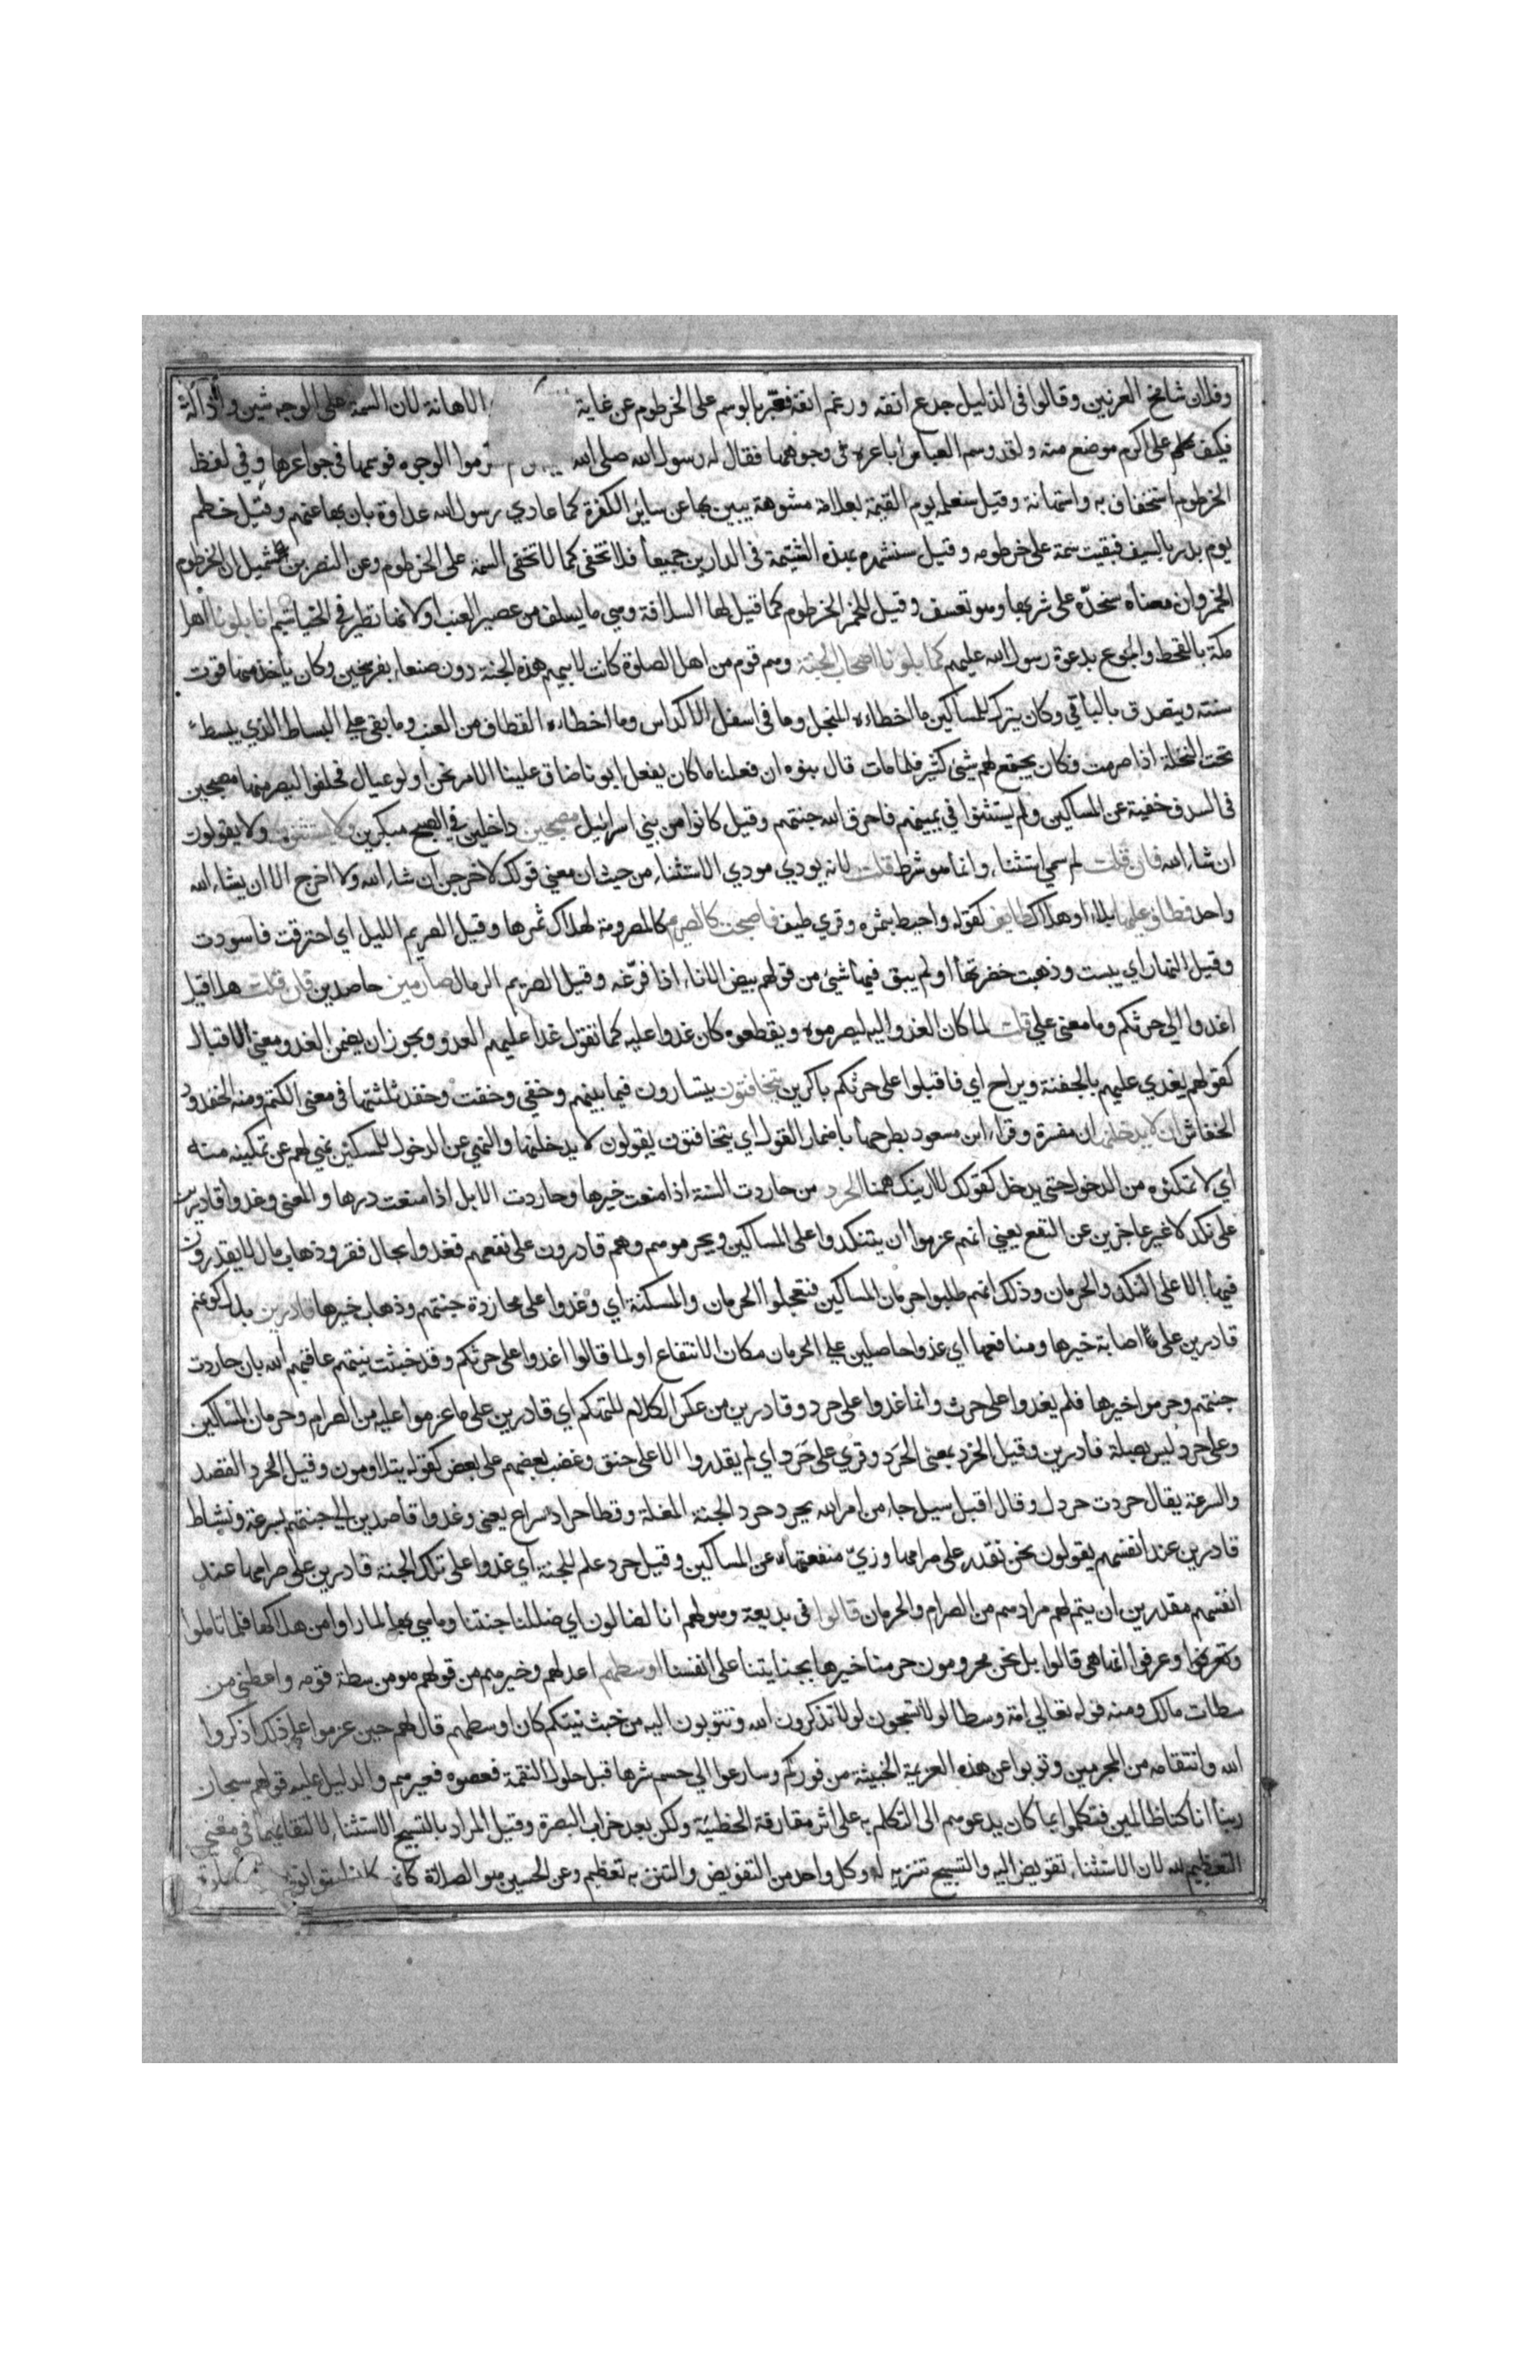 وفلان شامخ العرنين وقالوا في الذليل جدع انفه ورغم انفه فعبر بالوسم على الخرطوم عن غاية الاهانة لان السمة على الوجه شين واذالة
فكيف بها على اكرم موضع منه ولقد وسم العباس اباعره في وجوهها فقال له رسول الله صلى الله الوجوه فوسمها في جواعرها وفي لفظ
الخرطوم استخفاف به واستهانة وقيل سنعلمه يوم القيمة بعلامة مشوهة يبين بها عن ساير الكفرة كما عادي رسول الله عداوة بان بها عنهم وقيل خطم
يوم بدر بالسيف فبقيت سمة على خرطومه وقيل سنشهره بهذه الشتيمة في الدارين جميعا فلا تخفى كما لا تخفى السمة على الخرطوم وعن النضر بن شميل ان الخرطوم
الخمر وان معناه سنحده على شربها وهو تعسف وقيل للخمر الخرطوم كما قيل لها السلافة وهي ما يسلف من عصير العنب او لانها تطير في الخياشيم انا بلونا اهل
مكة بالقحط والجوع بدعوة رسول الله عليهم كما بلونا اصحاب الجنة وهم قوم من اهل الصلوة كانت لابيهم هذه الجنة دون صنعاء بفرسخين وكان ياخذ منها قوت
سنته ويتصدق بالباقي وكان يترك للمساكين ما اخطاءه المنجل وما في اسفل الاكداس وما اخطاءه القطاف من العنب وما بقي على البساط الذي يبسط
تحت النخلة اذا صرمت فكان يجتمع لهم شئ كثير فلما مات قال بنوه ان فعلنا ما كان يفعل ابونا ضاق علينا الامر نحن اولو عيال فحلفوا ليصرمنها مصبحين
في السدف خفية عن المساكين ولم يستثنوا في يمينهم فاحرق الله جنتهم وقيل كانوا من بني اسرائيل مصبحين داخلين في الصبح مبكرين ولا يستثنون ولا يقولون
ان شاء الله فان قلت لم سمي استثناء وانما هو شرط قلت لانه يودي مودي الاستثناء من حيث ان معنى قولك لاخرجن ان شاء الله ولا اخرج الا ان يشاء الله
واحد فطاف عليها بلاء او هلاك طايف كقوله واحيط بثمره وقري طيف فاصبحت كالصريم كالمصرومة لهلاك ثمرها وقيل الصريم الليل اي احترقت فاسودت
وقيل النهار اي يبست وذهبت خضرتها او لم يبق فيها شئ من قولهم بيض الاناء اذا فرغه وقيل الصريم الرمال صارمين حاصدين فان قلت هلا قيل
اغدوا الي حرثكم وما معنى على قلت لما كان الغدو اليه ليصرموه ويقطعوه كان غدوا عليه كما تقول غدا عليهم العدو ويجوز ان يضمن الغدو معنى الاقبال
كقولهم يغدي عليهم بالجفنة ويراح اي فاقبلوا على حرثكم باكرين يتخافتون يتسارون فيما بينهم وخفي وخفت وخفد ثلثتها في معنى الكتم ومنه الخفدود
الخفاش ان لا يدخلنها ان مفسرة وقراء ابن مسعود بطرحها باضمار القول اي يتخافتون يقولون لا يدخلنها والنهي عن الدخول للمسكين نهي لهم عن تمكينه منه
اي لا تمكنوه من الدخول حتي يدخل كقولك لا ارينك ههنا الحرد من حاردت السنة اذا منعت خيرها وحاردت الابل اذا منعت درها والمعنى وغدوا قادرين
على نكد لا غير عاجزين عن النفع يعني انهم عزموا ان يتنكدوا على المساكين ويحرموهم وهم قادرون على نفعهم فغدوا بحال فقر وذهاب مال لا يقدرون
فيها الا على النكد والحرمان وذلك انهم طلبوا حرمان المساكين فتعجلوا الحرمان والمسكنة اي وغدوا على محاردة جنتهم وذهاب خيرها قادرين بدل كونهم
قادرين على اصابة خيرها ومنافعها اي غدوا حاصلين على الحرمان مكان الانتفاع او لما قالوا اغدوا على حرثكم وقد خبثت نيتهم عاقبهم الله بان حاردت
جنتهم وحرموا خيرها فلم يغدوا على حرث وانما غدوا على حرد وقادرين من عكس الكلام للتهكم اي قادرين على ما عزموا عليه من الصرام وحرمان المساكين
وعلى حرد ليس بصلة قادرين وقيل الحرد بمعنى الحرد وقري على حرد اي لم يقدروا الا على حنق وغضب بعضهم على بعض كقوله يتلاومون وقيل الحرد القصد
والسرعة يقال حردت حردك وقال اقبل سيل جاء من امر الله يحرد حرد الجنة المغلة وقطا حراد سراع يعني وغدوا قاصدين الي جنتهم بسرعة ونشاط
قادرين عند انفسهم يقولون نحن نقدر على صرامها وزي منفعتها عن المساكين وقيل حرد علم للجنة اي غدوا على تلك الجنة قادرين على صرامها عند
انفسهم مقدرين ان يتم لهم مرادهم من الصرام والحرمان قالوا في بديهة وصولهم انا لضالون اي ضللنا جنتنا وما هي بها لما راوا من هلاكها فلما تاملوا
وعرفوا انها هي قالوا بل نحن محرومون حرمنا خيرها بجنايتنا على انفسنا اوسطهم اعدلهم وخيرهم من قولهم هو من سطة قومه واعطني من
سطات مالك ومنه قوله تعالى امة وسطا لولا تسبحون لولا تذكرون الله وتتوبون اليه من خبث نيتكم كان اوسطهم قال لهم حين عزموا على ذلك اذكروا
الله وانتقامه من المجرمين وتوبوا عن هذه العزيمة الخبيثة من فوركم وسارعوا الي حسم شرها قبل حلول النقمة فعصوه فعيرهم والدليل عليه قولهم سبحان
ربنا انا كنا ظالمين فتكلموا بما كان يدعوهم الى التكلم به على اثر مقارفة الخطيئة ولكن بعد خراب البصرة وقيل المراد بالتسبيح الاستثناء لالتقائهما في معنى
التعظيم لله لان الاستثناء تفويض اليه والتسبيح تنزيه له وكل واحد من التفويض والتنزيه تعظيم وعن الحسين هو الصلاة